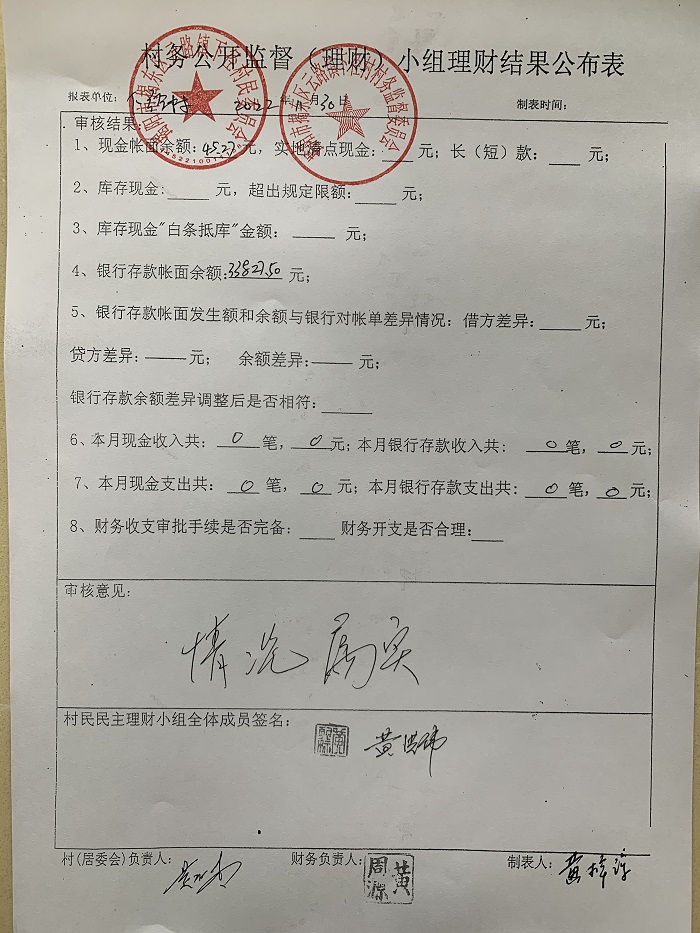 村务公开监督(理财)小组理财结果公布表
报表单位: 2022年11月30日 制表时间:
审核结果:
1、现金帐面余额:45.27元,实地清点现金:___元;长(短)款:___元;
2、库存现金:_____元,超出规定限额:_____元;
3、库存现金"白条抵库"金额: _____ 元;
4、银行存款帐面余额:33827.50元;
5、银行存款帐面发生额和余额与银行对帐单差异情况:借方差异:_____元;
贷方差异:_____元; 余额差异:_____元;
银行存款余额差异调整后是否相符:______
6、本月现金收入共:0笔,0元;本月银行存款收入共:0笔,0元;
7、本月现金支出共:0笔,0元;本月银行存款支出共:0笔,0元;
8、财务收支审批手续是否完备:____ 财务开支是否合理:____
审核意见:
情况属实
村民民主理财小组全体成员签名:
村(居委会)负责人: 财务负责人:黄周源 制表人: